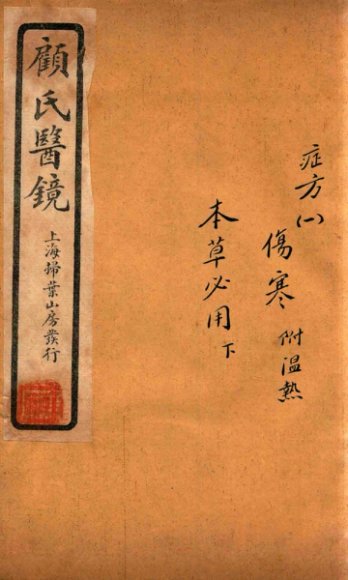 症方(一)
傷寒 附温熱
本草必用 下
顧氏醫鏡
上海掃葉山房發行